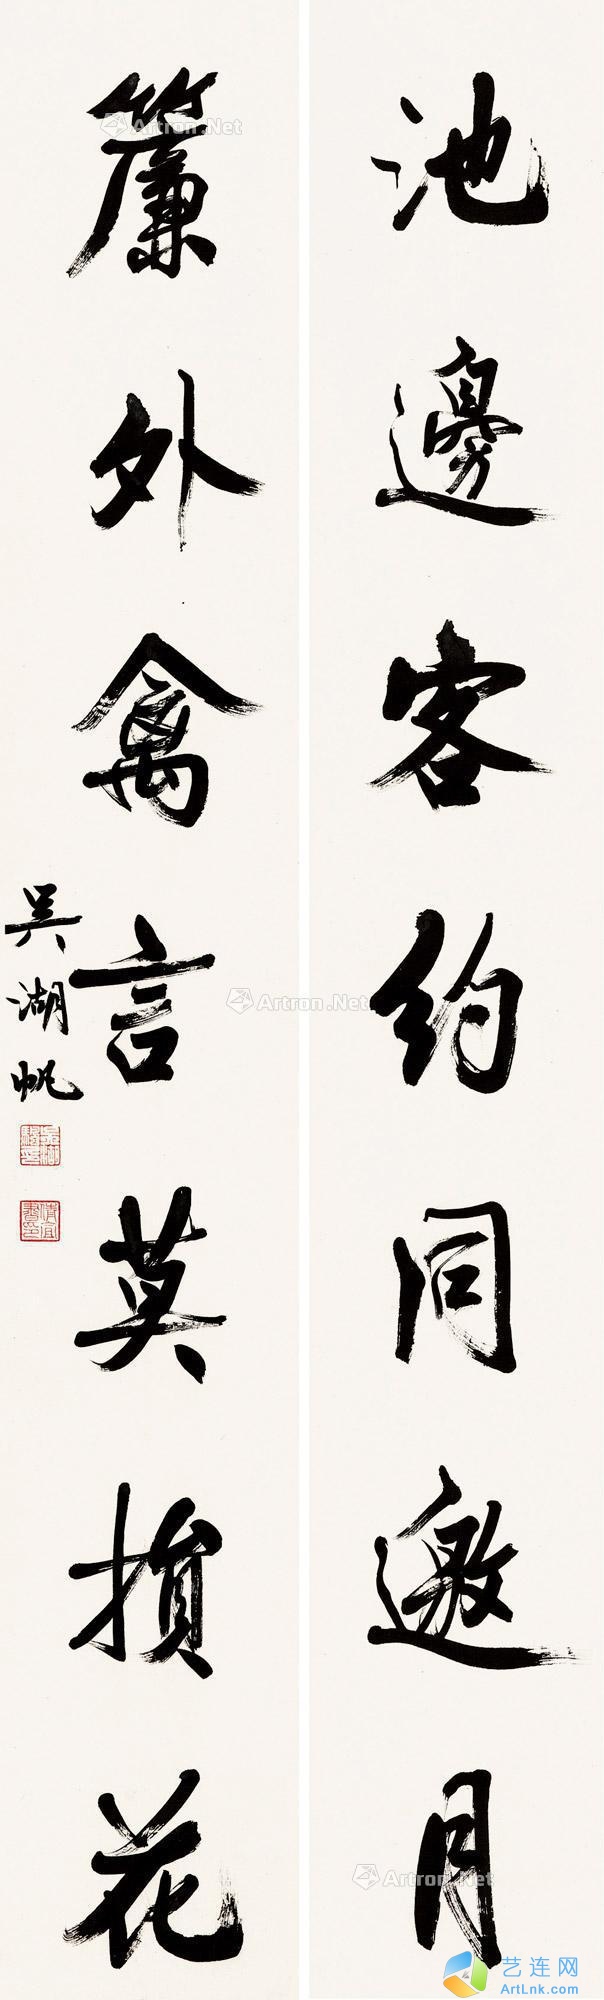 池邊客約同邀月
簾外禽言莫損花
吳湖帆
Artron.Net
Artron.Net
Artron.Net
Artron.Net
艺连网
ArtLnk.com